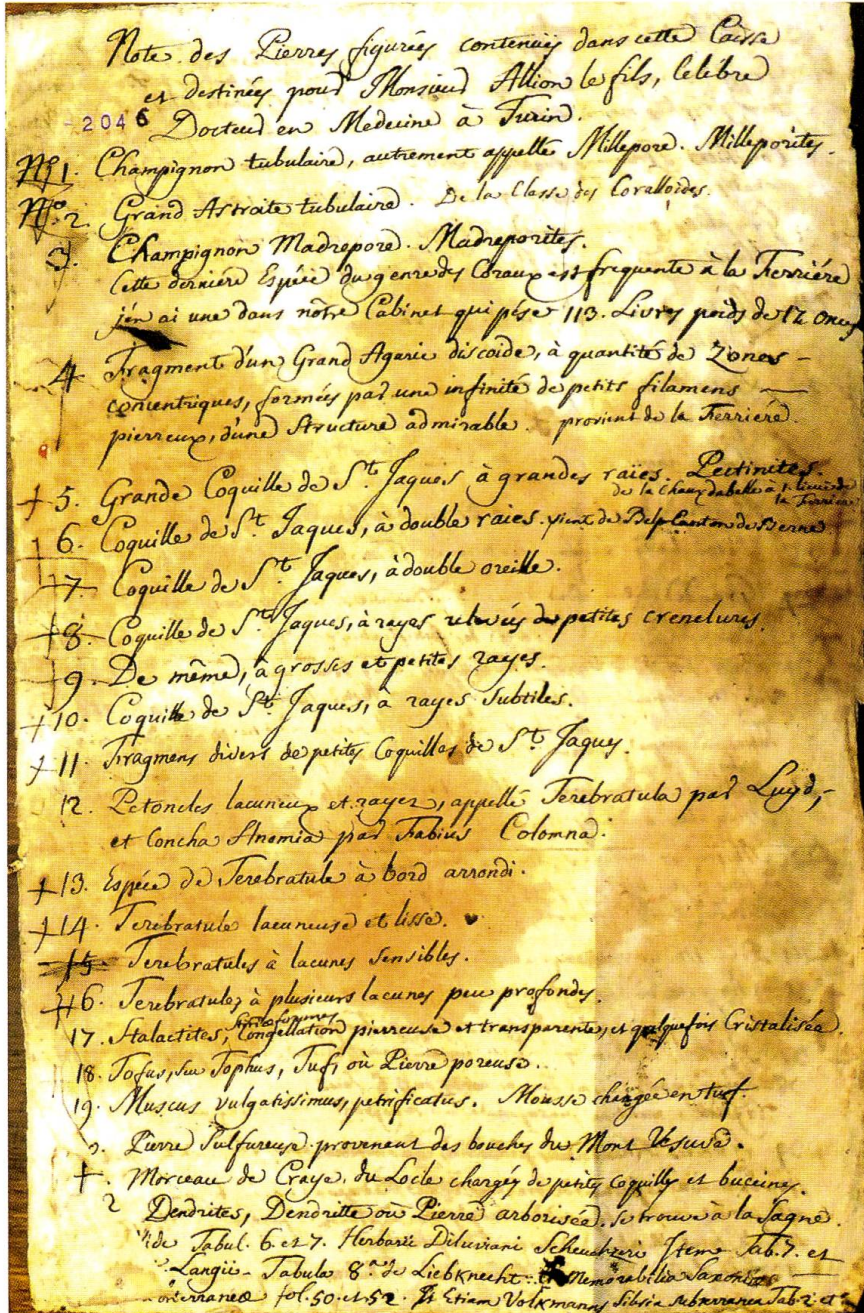 Note des Pierres figurées contenües dans cette Caisse
et destinées pour Monsieur Allion le fils, celebre
2046
Docteur en Medecine à Turin.
Nº 1. Champignon tubulaire, autrement appellé Millepore. Milleporites.
Nº 2. Grand Astroite tubulaire. De la Classe des Coralloides.
3. Champignon Madrepore. Madreporites.
Cette derniére Espéce du genre des Coraux est frequente à la Ferriére
j'en ai une dans nôtre Cabinet qui pése 113. Livres poids de 12 onces
4 Fragment d'un Grand Agaric discoide, à quantité de Zones -
concentriques, formées par une infinité de petits filamens —
pierreux, d'une Structure admirable. provient de la Ferriére.
+ 5. Grande Coquille de St. Jaques à grandes raïes. Pectinites.
de la Chaurdabelle à 1. lieue de
la Ferriere
+ 6. Coquille de St. Jaques, à double raies. vient de Belp Canton de Berne
+ 7. Coquille de St. Jaques, à double oreille.
+ 8. Coquille de St. Jaques, à rayes relevées de petites crenelures.
+ 9. De même, à grosses et petites rayes.
+ 10. Coquille de St. Jaques, à rayes subtiles.
+ 11. Fragmens divers de petites Coquilles de St. Jaques.
12. Petoncles lacuneux et rayez, appellé Terebratula par Luyd,
et Concha Anomia par Fabius Colomna.
+ 13. Espéce de Terebratule à bord arrondi.
+ 14. Terebratule lacuneuse et lisse.
+ 15. Terebratules à lacunes sensibles.
+ 16. Terebratules à plusieurs lacunes peu profondes.
17. Stalactites, Congellation pierreuse et transparente, et quelquefois Cristalisée.
18. Tofus, seu Tophus, Tuf, où Pierre poreuse.
19. Muscus vulgatissimus, petrificatus. Mousse changée en tuf.
Pierre Sulfureuse provenent des bouches du Mont Vesuve.
+. Morceau de Craye, du Locle chargéz de petites coquilles et buccines.
2 Dendrites, Dendritte où Pierre arborisée. se trouve à la Sagne.
Vide Tabul. 6. et 7. Herbarii Diluviani Scheuchzeri Item Tab. 7. et
Langii - Tabula 8.va de Liebknecht: Memorabilia Saxoniae
fol. 50. et 52. Etiam Volkmanns Silesia subterranea Tab. 2. et